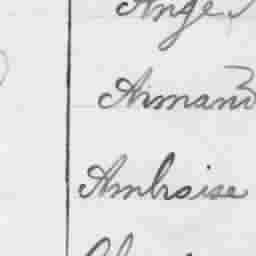 Ange
Armand
Ambroise